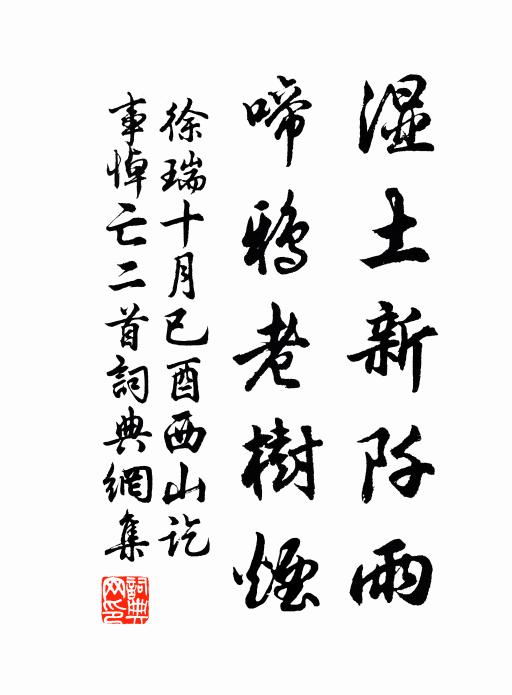 湿土新阡雨
啼鴉老樹煙
徐瑞十月已酉西山訖
事悼亡二首詞典網集
詞典网印